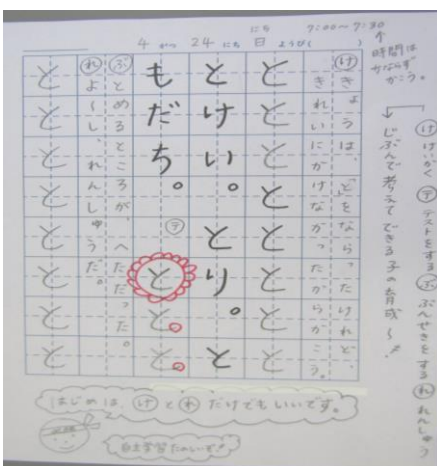 4 がつ 24 にち 日 ようび(
にち
7:00〜7:30
↑
時間は
かならず
かこう。
け きょうは、「と」をならったけれど、
きれいにかけなかったからかこう。
とととととととと
とけい。とり。と
もだち。テととと
ぶ とめるところが、へただった。
れ よーし、れんしゅうだ。
とととととととと
け けいかく テ テストをする ぶ ぶんせきをする れ れんしゅう
→ じぶんで考えてできる子の育成〜!
はじめは け と れ だけでもいいです。
自主学習たのしいぞ!